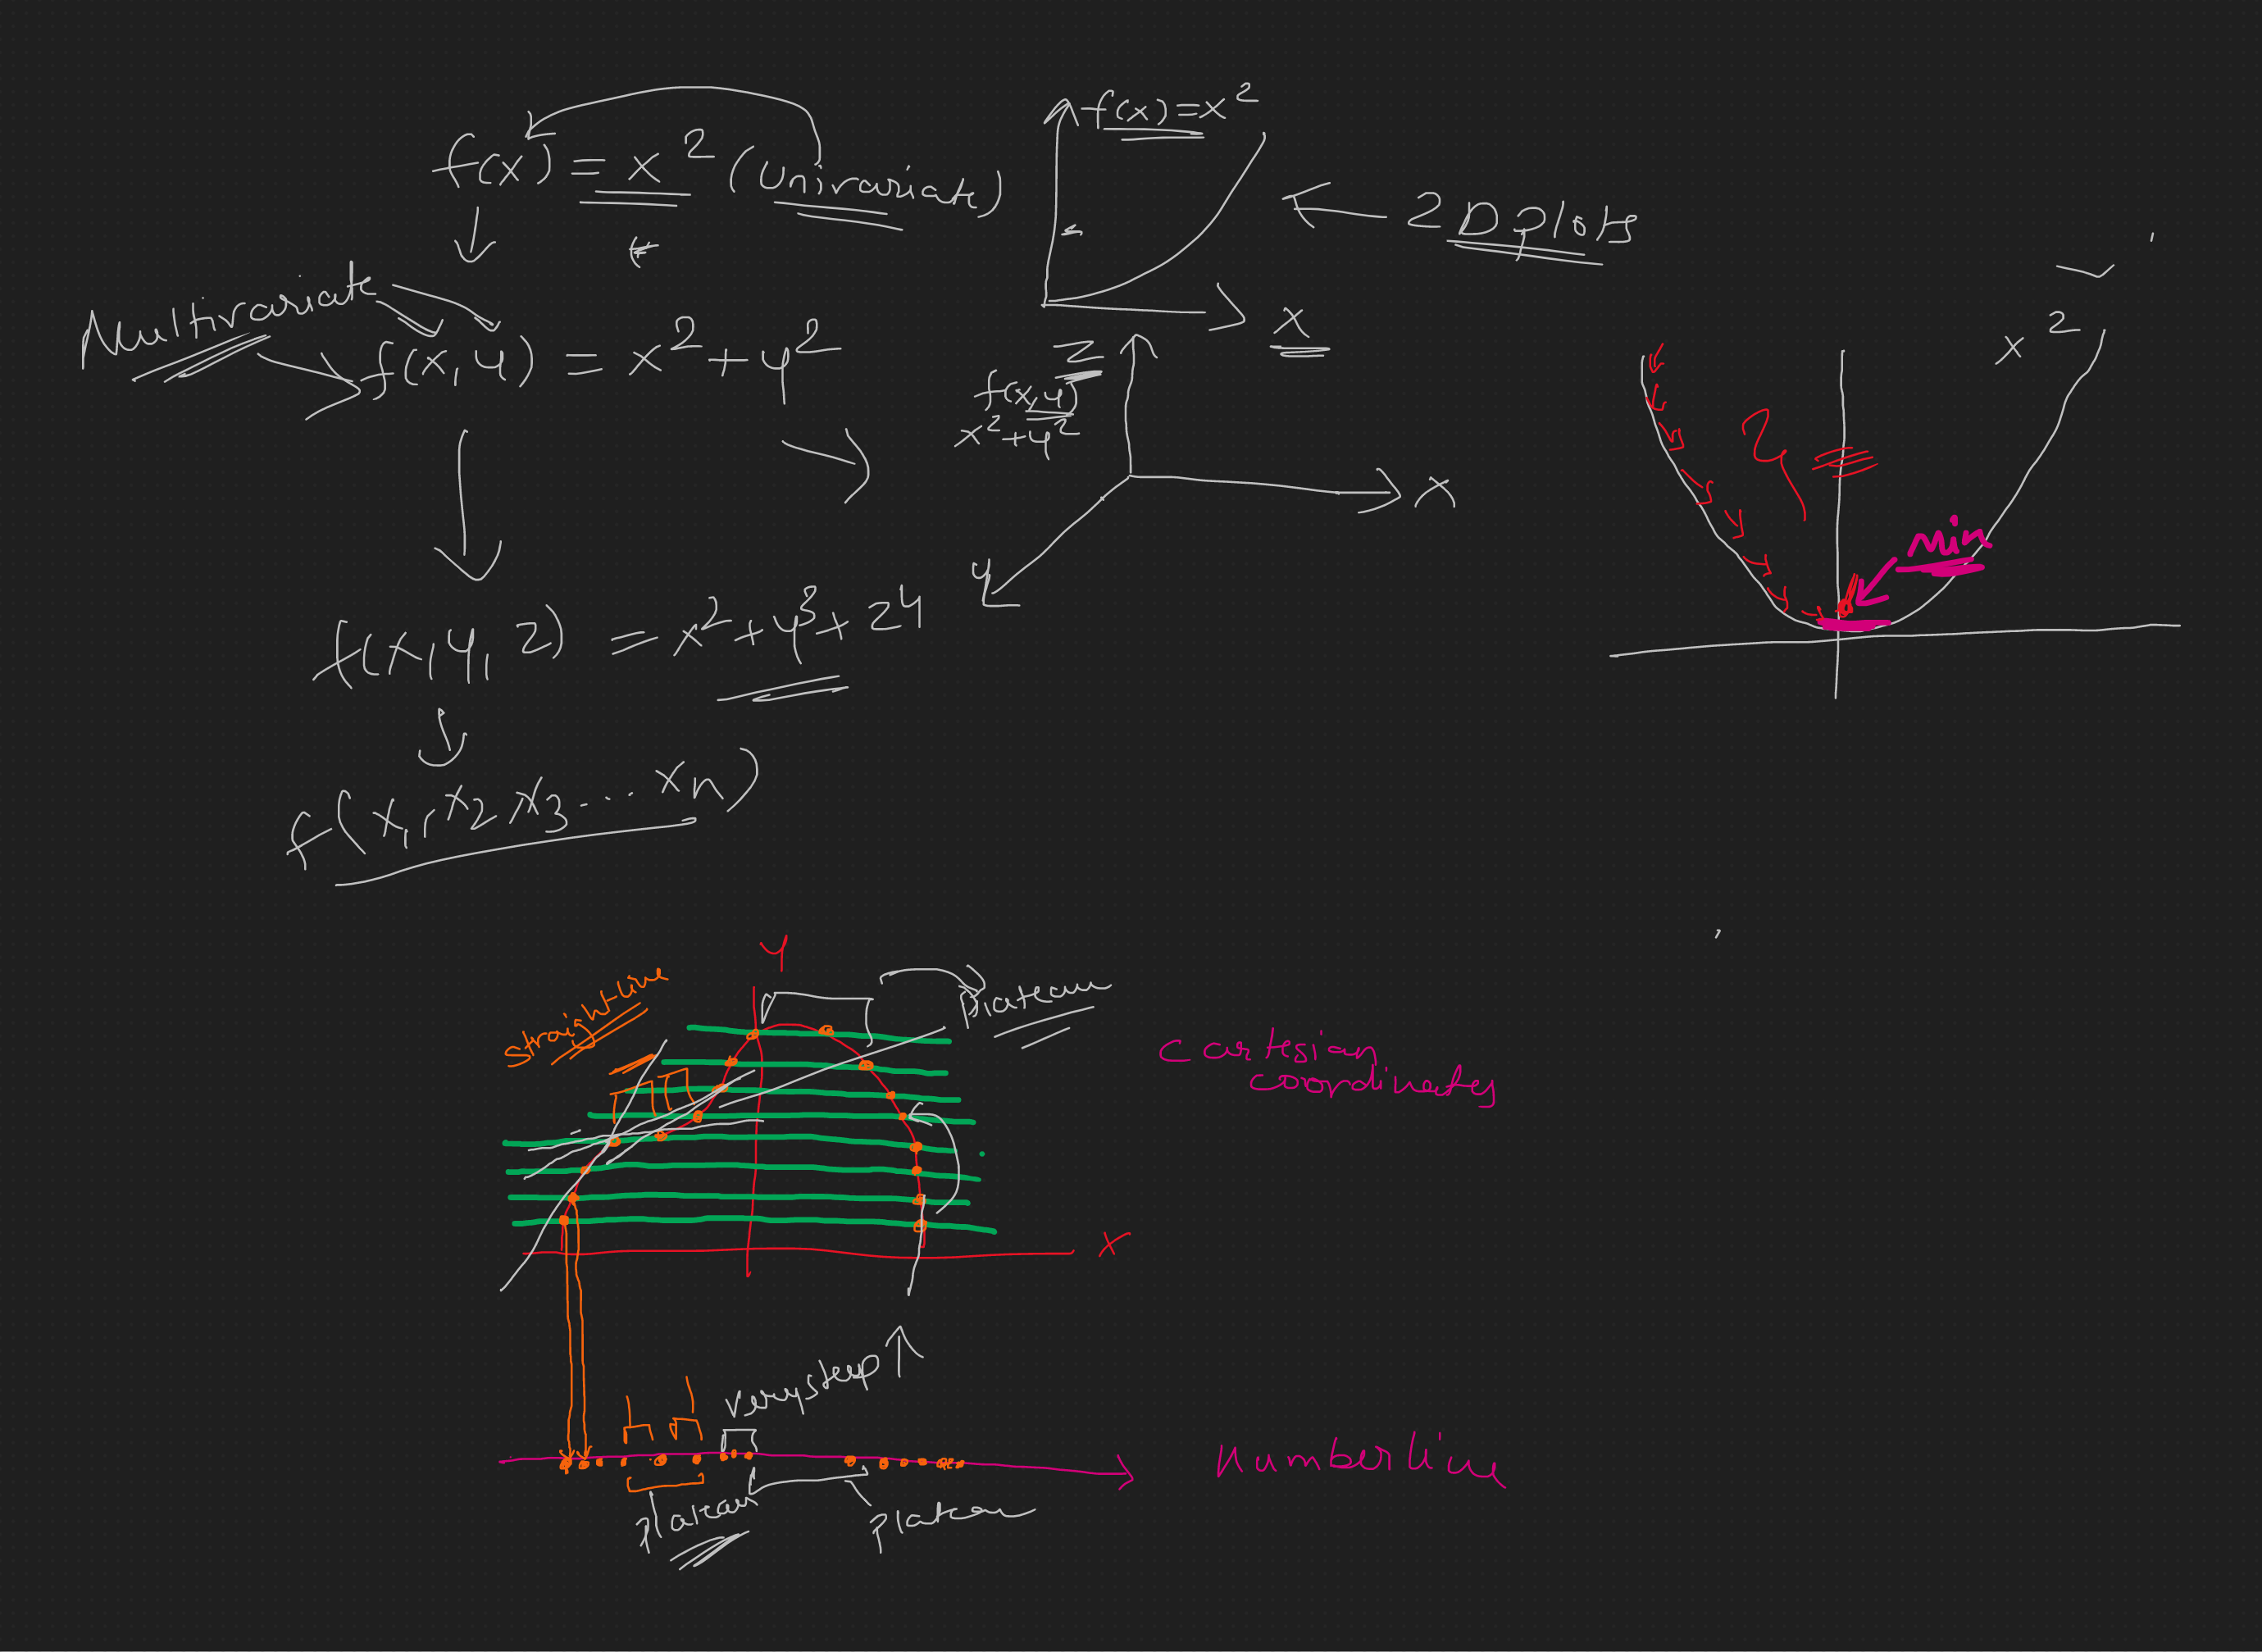 f(x) = x² (univariate)
Multivariate
f(x,y) = x² + y²
f(x,y,z) = x² + y³ + z⁴
f(x₁, x₂, x₃ ... xₙ)
f(x) = x²
x
2D plots
z
f(x,y)
x² + y²
x
y
x²
min
y
straight line
plateau
x
cartesian
coordinates
very steep
plateau
plateau
Number line